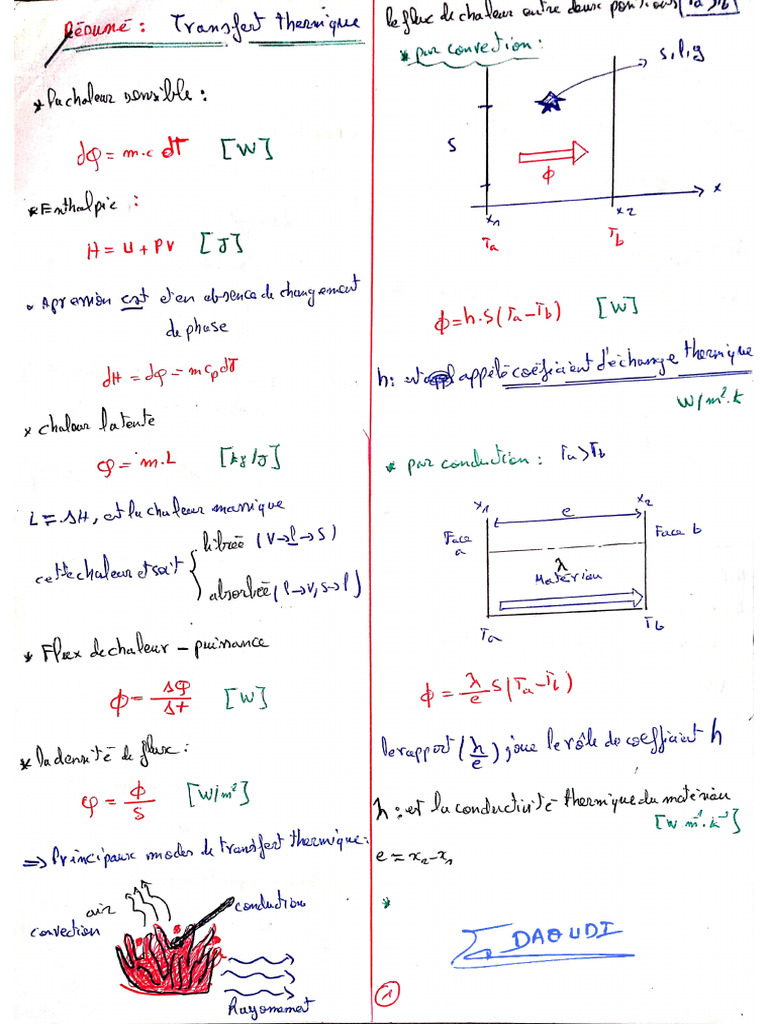 Résumé : Transfert thermique
* La chaleur sensible :
dφ = m.c dT [W]
* Enthalpie :
H = U + PV [J]
• A pression cst et en absence de changement
de phase
dH = dφ = m cp dT
* chaleur latente
φ = m.L [kg/J]
L = ΔH, est la chaleur massique
cette chaleur est soit
libréé (V→l→S)
absorbéé (l→v, s→l)
* Flux de chaleur - puissance
ϕ = Δφ/Δt [W]
* la densité de flux :
φ = ϕ/S [W/m²]
⇒ Principaux modes de transfert thermique :
air
convection
conduction
Rayonnement
le flux de chaleur entre deux positions (Ta > Tb)
* par convection :
s, l, g
S
ϕ
x
x1
x2
Ta
Tb
ϕ = h.S (Ta - Tb) [W]
h : est appélé coéficient d'échange thermique
W/m².K
* par conduction : Ta > Tb
x1
e
x2
Face
a
Face b
λ
Matériau
Ta
Tb
ϕ = λ/e S (Ta - Tb)
le rapport (λ/e) joue le rôle de coefficient h
λ : est la conductivité thermique du matériau
[W m⁻¹.k⁻¹]
e = x2 - x1
*
DAOUDI
1